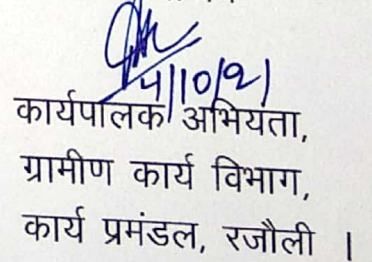 4/10/21
कार्यपालक अभियता,
ग्रामीण कार्य विभाग,
कार्य प्रमंडल, रजौली ।